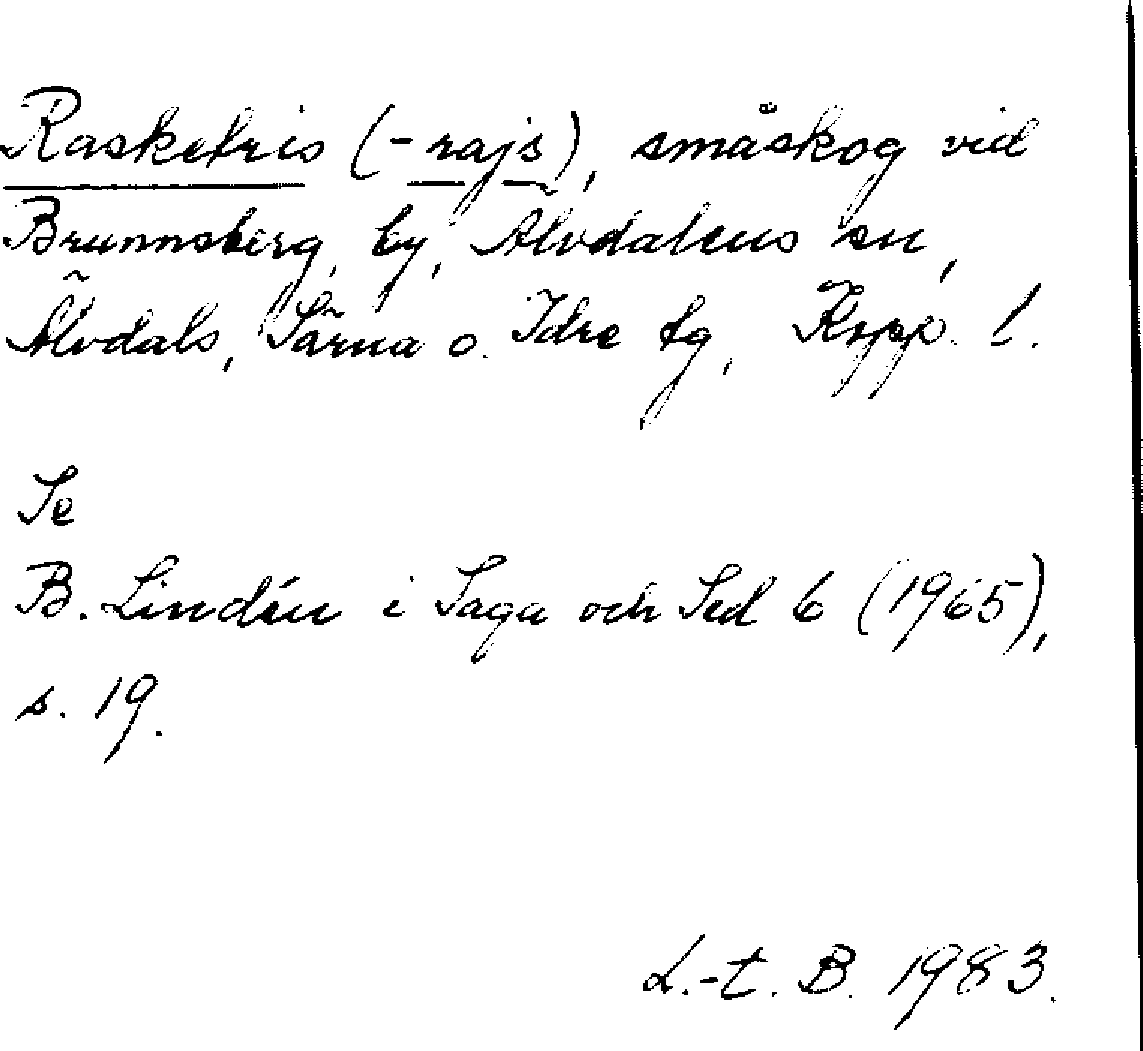 Rasketris (-rajs), småskog vid
Brunnsberg, by, Älvdalens sn,
Älvdals, Särna o. Idre tg, Kopp. l.
Se
B. Lindén i Saga och Sed 6 (1965),
s. 19.
L.-t. B. 1983.